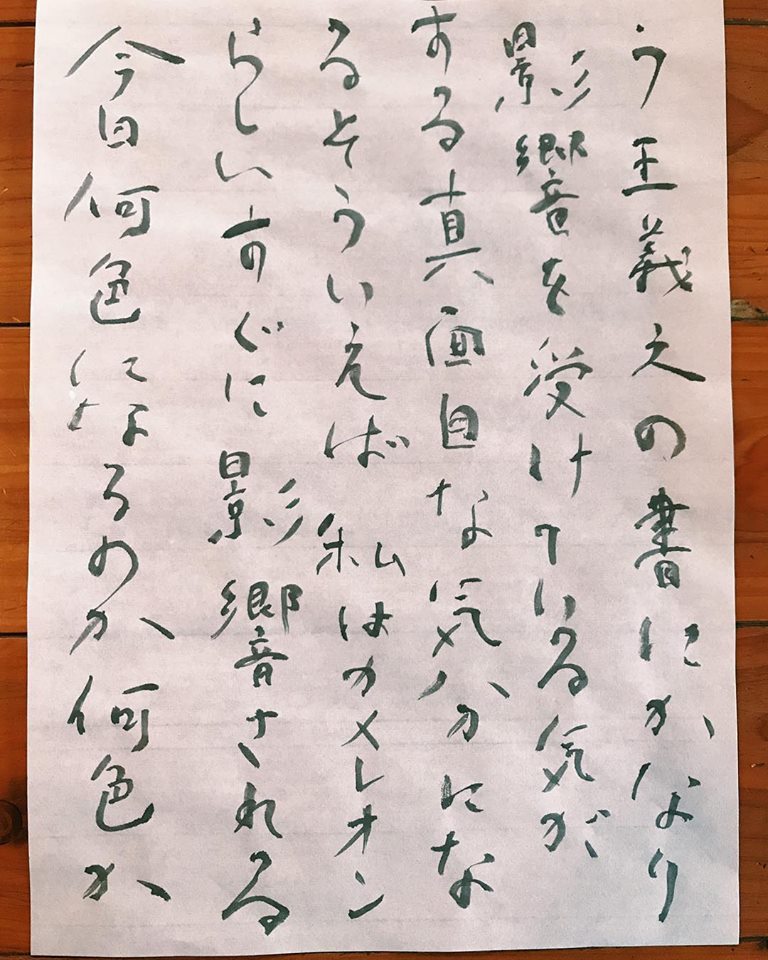 う王義之の書にかなり
影響を受けている気が
する真面目な気分にな
るとそういえば私はカメレオン
らしいすぐに影響される
今日何色になるのか何色か